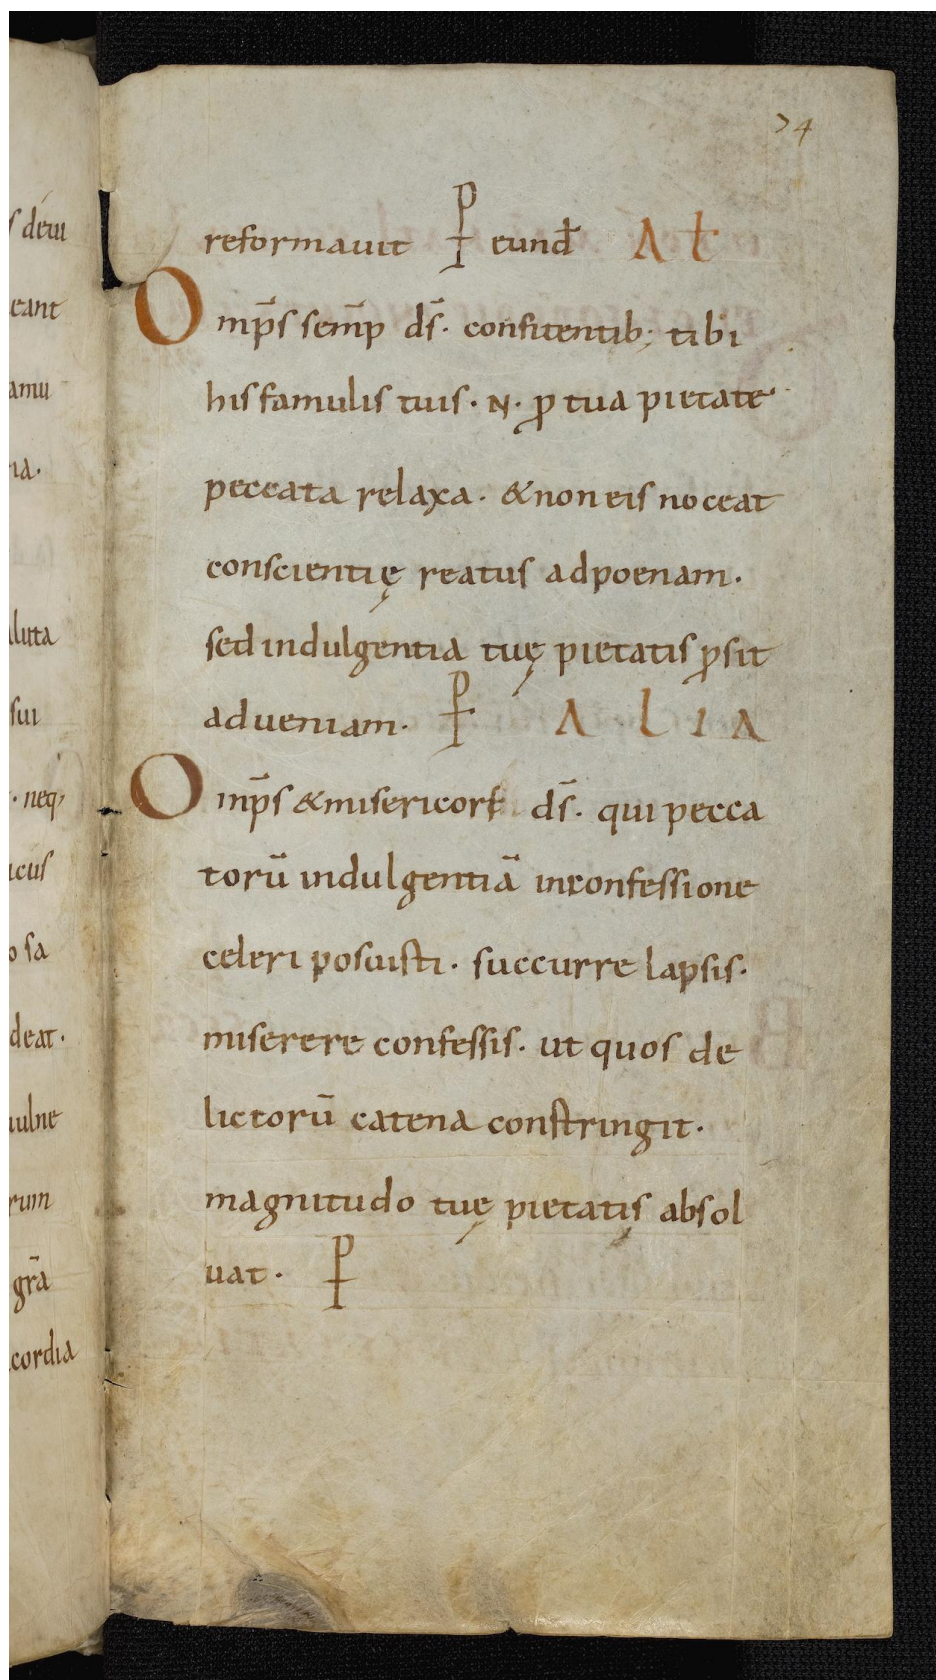 74
reformauit P eund̄ At
Omp̄s sem̄p ds̄. confitentib; tibi
his famulis tuis. N. ꝓ tua pietate
peccata relaxa. & non eis noceat
conscientię reatus ad poenam.
sed indulgentia tuę pietatis ꝓsit
ad ueniam. P Alia
Omp̄s & misericors ds̄. qui pecca
torū indulgentiā in confessione
celeri posuisti. succurre lapsis.
miserere confessis. ut quos de
lictorū catena constringit.
magnitudo tuę pietatis absol
uat. P
eant
amu
sui
. neq,
deat.
grā